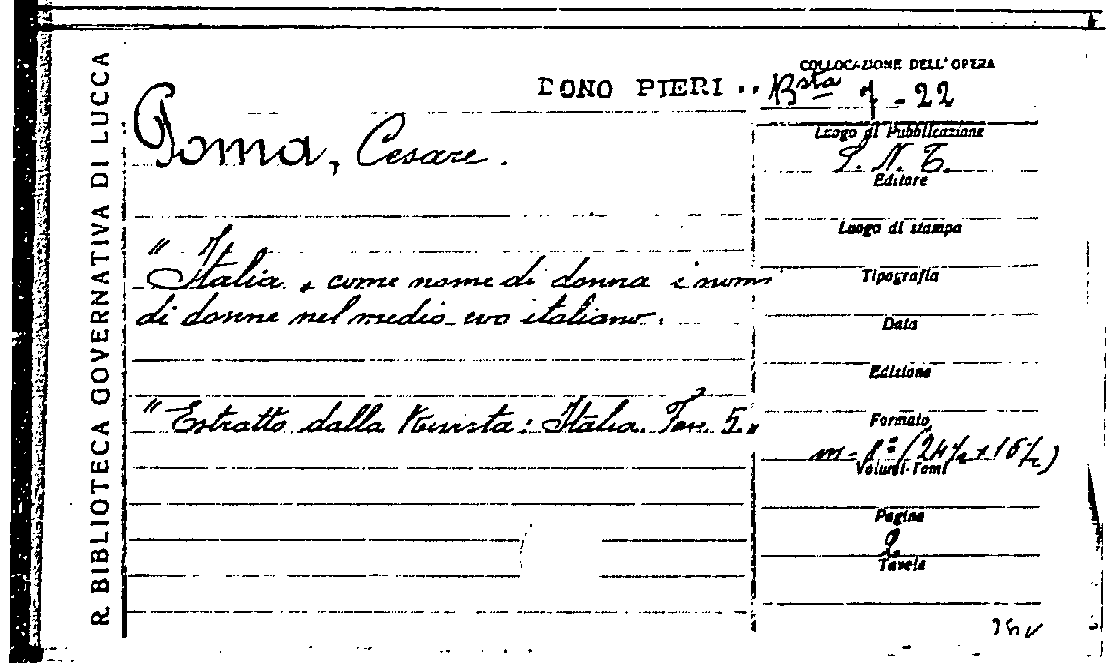 R. BIBLIOTECA GOVERNATIVA DI LUCCA
DONO PIERI ..
COLLOCAZIONE DELL'OPERA
Bsta 7 - 22
Poma, Cesare.
Luogo di Pubblicazione
S. N. T.
Editore
Luogo di stampa
"Italia" come nome di donna e nomi
di donne nel medio evo italiano.
Tipografia
Data
Edizione
"Estratto dalla Rivista: Italia. Fasc. 5."
Formato
m-8° (24½ x 16½)
Volumi-Tomi
Pagine
2
Tavole